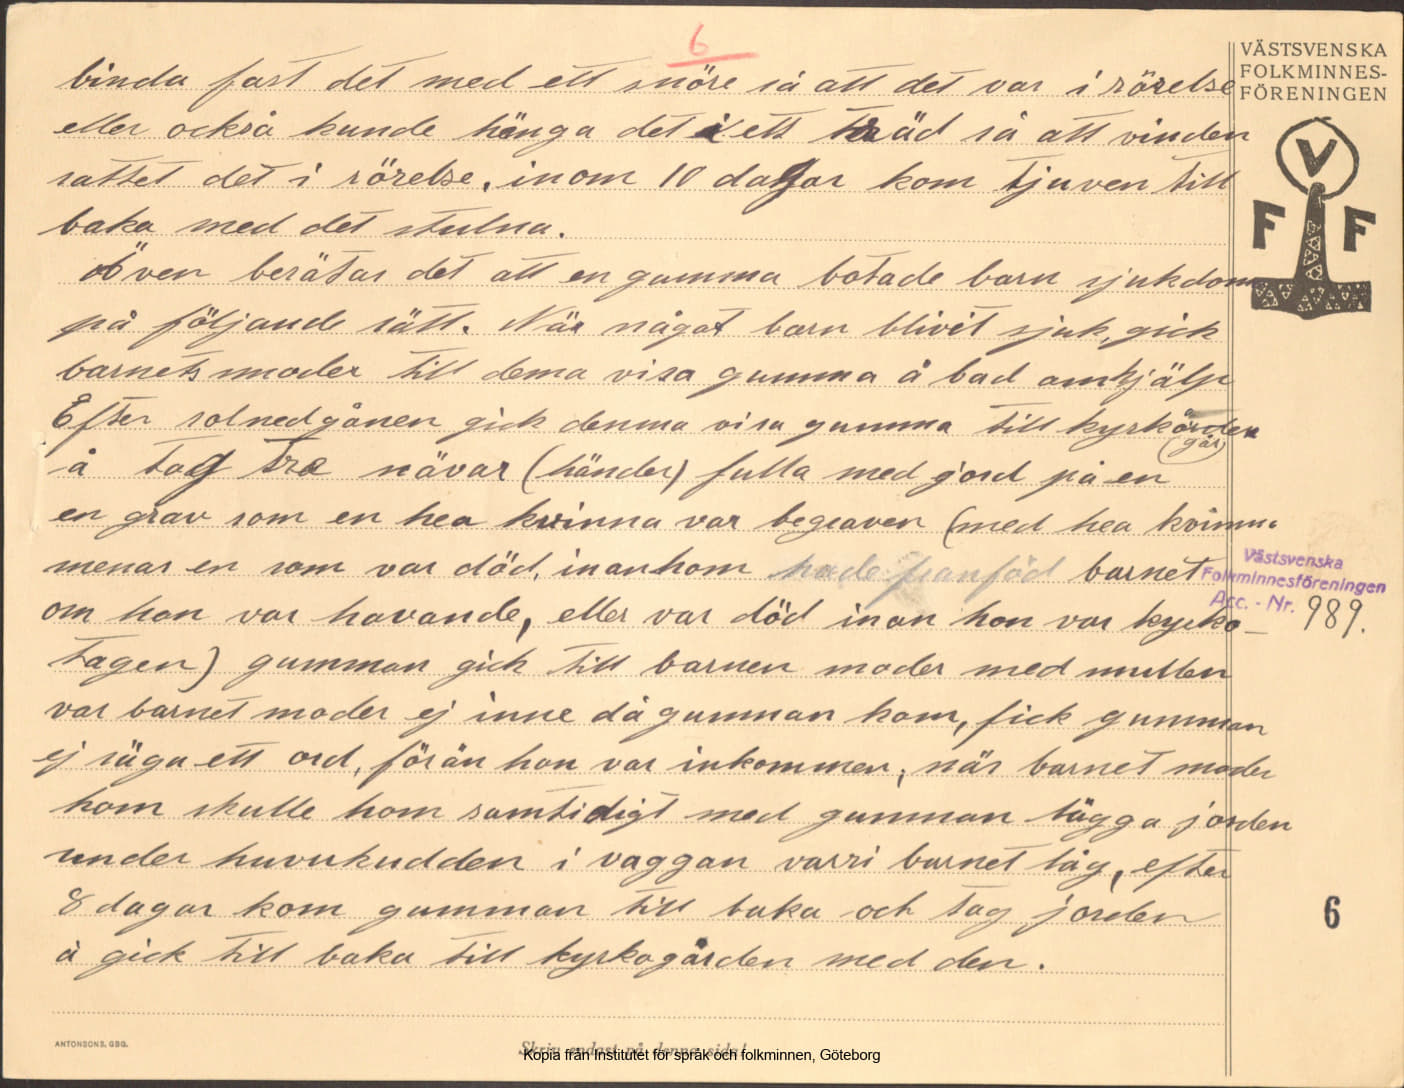 6
VÄSTSVENSKA
FOLKMINNES-
FÖRENINGEN
V
F F
binda fast det med ett snöre så att det var i rörelse
eller också kunde hänga det i ett träd så att vinden
sattet det i rörelse, inom 10 dagar kom tjuven till
baka med det stulna.
Även berätas det att en gumma botade barn sjukdom
på följande sätt. När något barn blivit sjuk, gick
barnets moder till dema visa gumma å bad om hjälp
Efter solnedgånen gick denma visa gumma till kyrkården
(går)
å tag tre nävar (händer) fulla med jord på en
en grav som en hea kvinna var begraven (med hea kvinna
menas en som var död, inan hon hade framföd barnet
om hon var havande, eller var död inan hon var kyrko-
tagen) gumman gick till barnen moder med mullen
var barnet moder ej inne då gumman kom, fick gumman
ej säga ett ord, förän hon var inkommen, när barnet moder
kom skulle hom samtidigt med gumman lägga jorden
under huvukudden i vaggan varri barnet låg, efter
8 dagar kom gumman till baka och tag jorden
å gick till baka till kyrkogården med den.
Västsvenska
Folkminnesföreningen
Acc. - Nr. 989.
6
ANTONSONS, GBG.
Skriv endast på denna sida!
Kopia från Institutet för språk och folkminnen, Göteborg